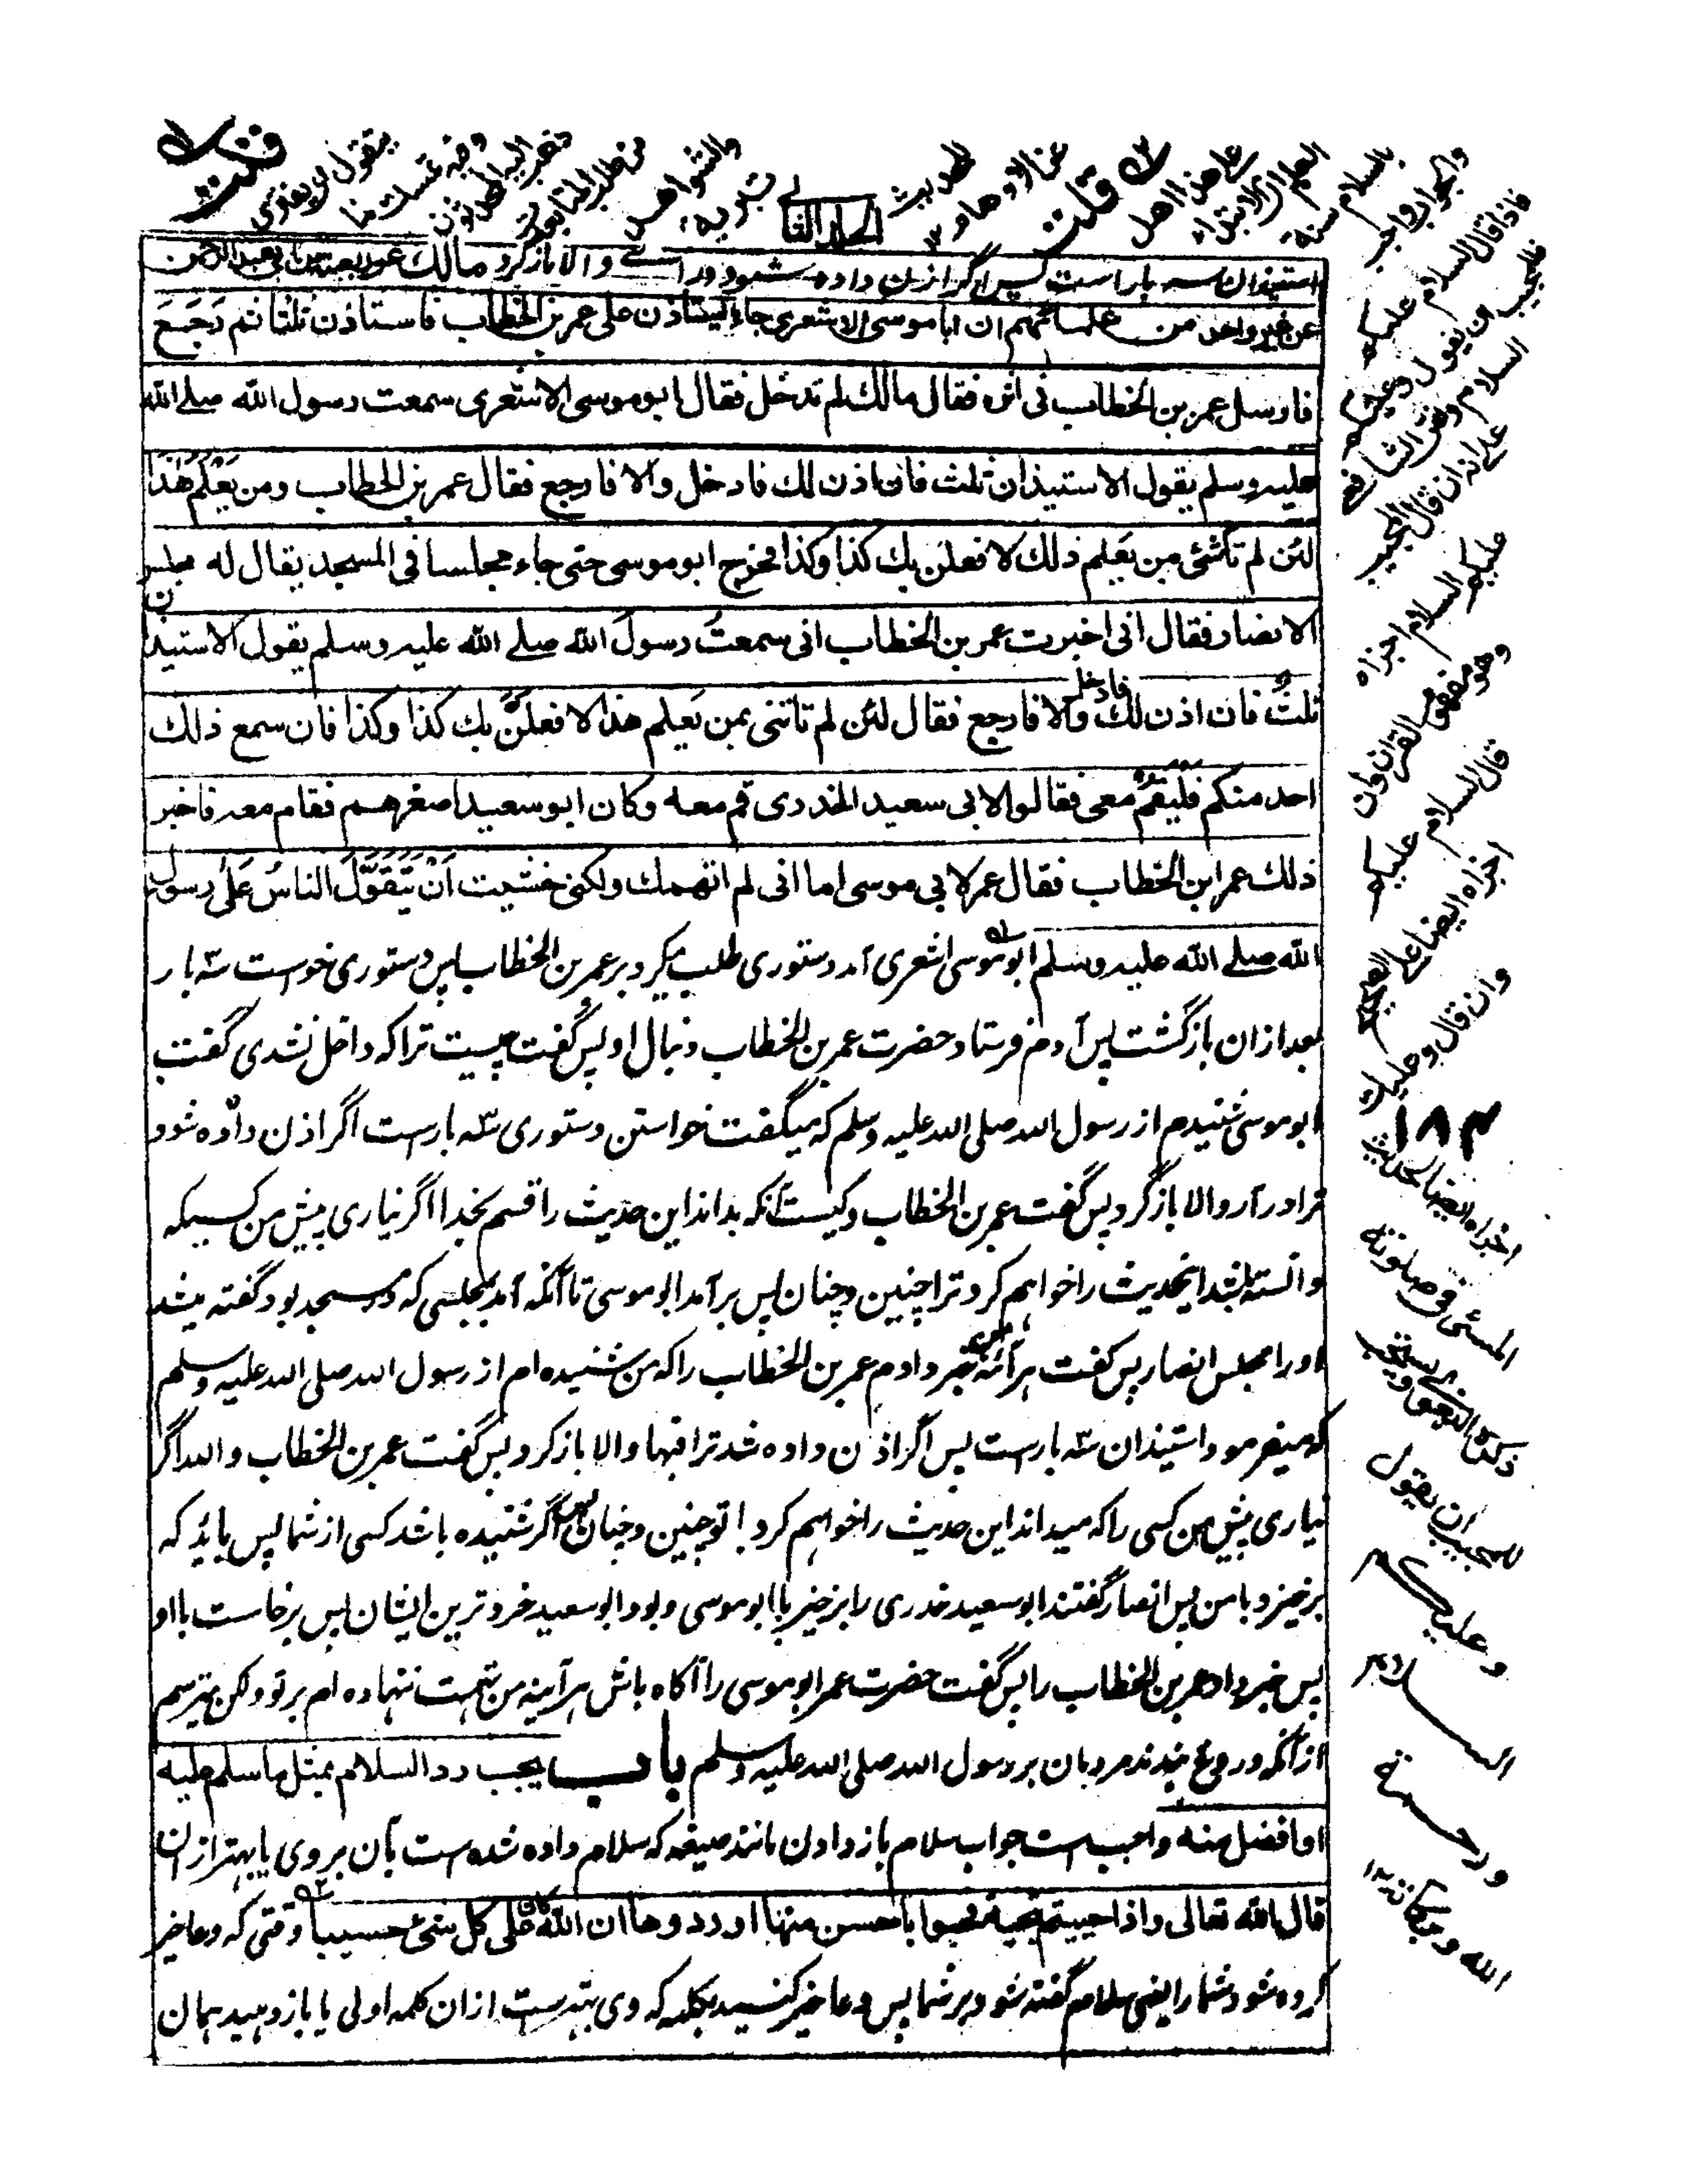 المجلد الثانى
استيذان سه بار است پس اگر اذن داده شود در آئے والا بازگرد مالك عن ربيعة بن ابى عبد الرحمن
عن غير واحد من علمائهم ان ابا موسى الاشعرى جاء ليستاذن على عمر بن الخطاب فاستاذن ثلثا ثم رَجَعَ
فارسل عمر بن الخطاب فى اثره فقال مالك لم تدخل فقال ابو موسى الاشعرى سمعت رسول الله صلے الله
عليه وسلم يقول الاستيذان ثلث فان اذن لك فادخل والا فارجع فقال عمر بن الخطاب ومن يَعْلَمُ هٰذَا
لئن لم تأتنى بمن يَعلم ذلك لافعلن بك كذا وكذا فخرج ابو موسى حتى جاء مجلسا فى المسجد يقال له مجلس
الانصار فقال انى اخبرت عمر بن الخطاب انى سمعتُ رسولَ الله صلے الله عليه وسلم يقول الاستيذان
ثلثٌ فان اذن لك فادخل والا فارجع فقال لئن لم تاتنى بمن يَعلم هذا لافعلنَّ بك كذا وكذا فان سمع ذلك
احد منكم فَلْيَقُمْ معى فقالوا لابى سعيد الخدرى قم معه وكان ابو سعيد اصغرهم فقام معه فاخبر
ذلك عمر ابن الخطاب فقال عمر لابى موسى اما انى لم اتهمك ولكنى خشيت اَنْ يَّتَقَوَّلَ الناسُ عَلٰى رسول
الله صلے الله عليه وسلم ابو موسى اشعرى آمد دستورى طلب ميكرد بر عمر بن الخطاب پس دستورى خواست سه بار
بعد ازان بازگشت پس آدم فرستاد حضرت عمر بن الخطاب دنبال او پس گفت چيست ترا كه داخل نشدى گفت
ابو موسى شنيدم از رسول الله صلى الله عليه وسلم كه ميگفت خواستن دستورى سه بارست اگر اذن داده شود
ترا در آ والا بازگرد پس گفت عمر بن الخطاب وكيست آنكه بداند اين حديث را قسم بخدا اگر نيارى پيش من كسيكه
دانسته باشد اينحديث را خواهم كرد ترا چنين وچنان پس برآمد ابو موسى تا آنكه آمد بمجلسى كه در مسجد بود گفته ميشد
او را مجلس انصار پس گفت هر آئنه خبر دادم عمر بن الخطاب را كه من شنيده ام از رسول الله صلى الله عليه وسلم
كه ميفرمود استيذان سه بارست پس اگر اذن داده شد ترا فبها والا بازگرد پس گفت عمر بن الخطاب والله اگر
نيارى پيش من كسى را كه ميداند اين حديث را خواهم كرد با تو چنين وچنان پس اگر شنيده باشد كسى از شما پس بايد كه
برخيزد با من پس انصار گفتند ابو سعيد خدرى را برخيز با ابو موسى وبود ابو سعيد خردترين ايشان پس برخاست با او
پس خبر داد عمر بن الخطاب را پس گفت حضرت عمر ابو موسى را آگاه باش هر آئينه من تهمت ننهاده ام بر تو ولكن ميترسم
از آنكه دروغ بندند مردمان بر رسول الله صلى الله عليه وسلم باب يجب رد السلام بمثل ما سلم عليه
او افضل منه واجب ست جواب سلام باز دادن مانند صيغه كه سلام داده شده است بآن بر وى يا بهتر از ان
قال الله تعالى واذا حييتم بتحية فحيوا باحسن منها او ردوها ان الله كان على كل شئ حسيبا وقتى كه دعا خير
كرده شود شما را يعنى سلام گفته شود بر شما پس دعا خير كنيد بكلمه كه وى بهترست از ان كلمه اولى يا باز دهيد همان
قلت
والجواب واجب
فاذا قال السلام عليكم
فالمجيب ان يقول وعليكم
السلام ونص الشافعى
على انه ان قال المجيب
عليكم السلام اجزاه
وهو مفهوم القران وان
قال السلام عليكم
اجزاه ايضا على الصحيح
وان قال وعليك
اجزاه ايضا لحديث
المسئ فى صلوته
للمجيب ان يقول
وعليكم
السلام
ورحمة
الله وبركاته ١٢